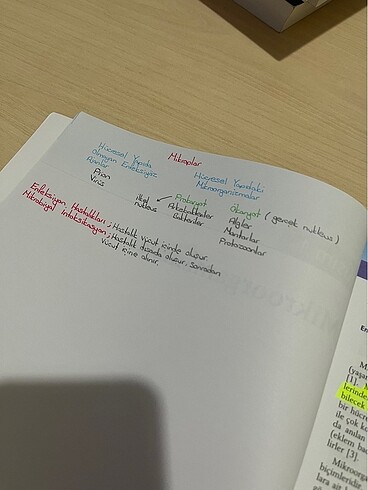 Mikroplar
Hücresel Yapıda
Olmayan Enfeksiyöz
Ajanlar
Prion
Virüs
Hücresel Yapıdaki
Mikroorganizmalar
ilkel
nukleus
Prokaryot
Arkebakteriler
Bakteriler
Ökaryot (gerçek nukleus)
Algler
Mantarlar
Protozoonlar
Enfeksiyon Hastalıkları; Hastalık vücut içinde oluşur.
Mikrobiyal İntoksikasyon; Hastalık dışarda oluşur, sonradan
vücut içine alınır.
En
M
(yaşar
[1].
lerinde
bilecek
bir hücr
ile çok ko
da anılan
(eklem bac
lirler [3].
Mikroorga
biçimleridir.
lara ait